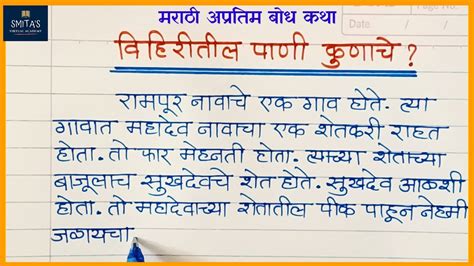 SMITA'S
VIRTUAL ACADEMY
मराठी अप्रतिम बोध कथा
विहिरीतील पाणी कुणाचे ?
रामपूर नावाचे एक गाव होते. त्या
गावात महादेव नावाचा एक शेतकरी राहत
होता. तो फार मेहनती होता. त्याच्या शेताच्या
बाजूलाच सुखदेवचे शेत होते. सुखदेव आळशी
होता. तो महादेवाच्या शेतातील पीक पाहून नेहमी
जळायचा